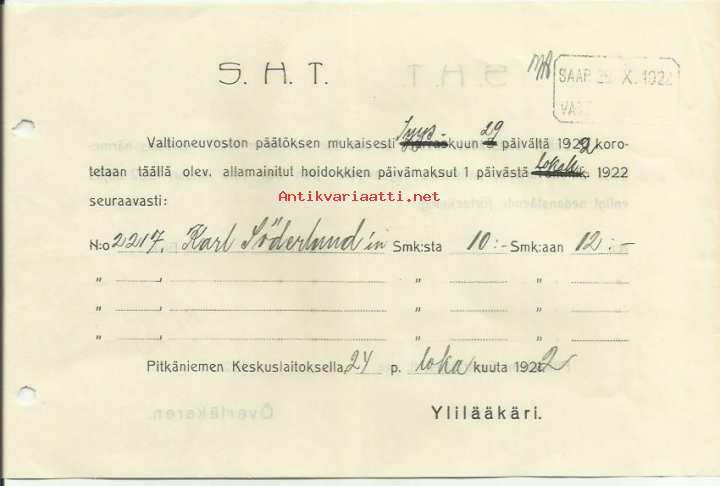 S. H. T.
SAAP. 25 X. 1922
VAST
Valtioneuvoston päätöksen mukaisesti Syys-kuun 29 päivältä 1922 koro-
tetaan täällä olev. allamainitut hoidokkien päivämaksut 1 päivästä lokak. 1922
Antikvariaatti.net
seuraavasti:
N:o 2217. Karl Söderlund'in Smk:sta 10:- Smk:aan 12:-
" " " "
" " " "
" " " "
Pitkäniemen Keskuslaitoksella, 24 p. loka kuuta 1922
Överläkaren.
Ylilääkäri.